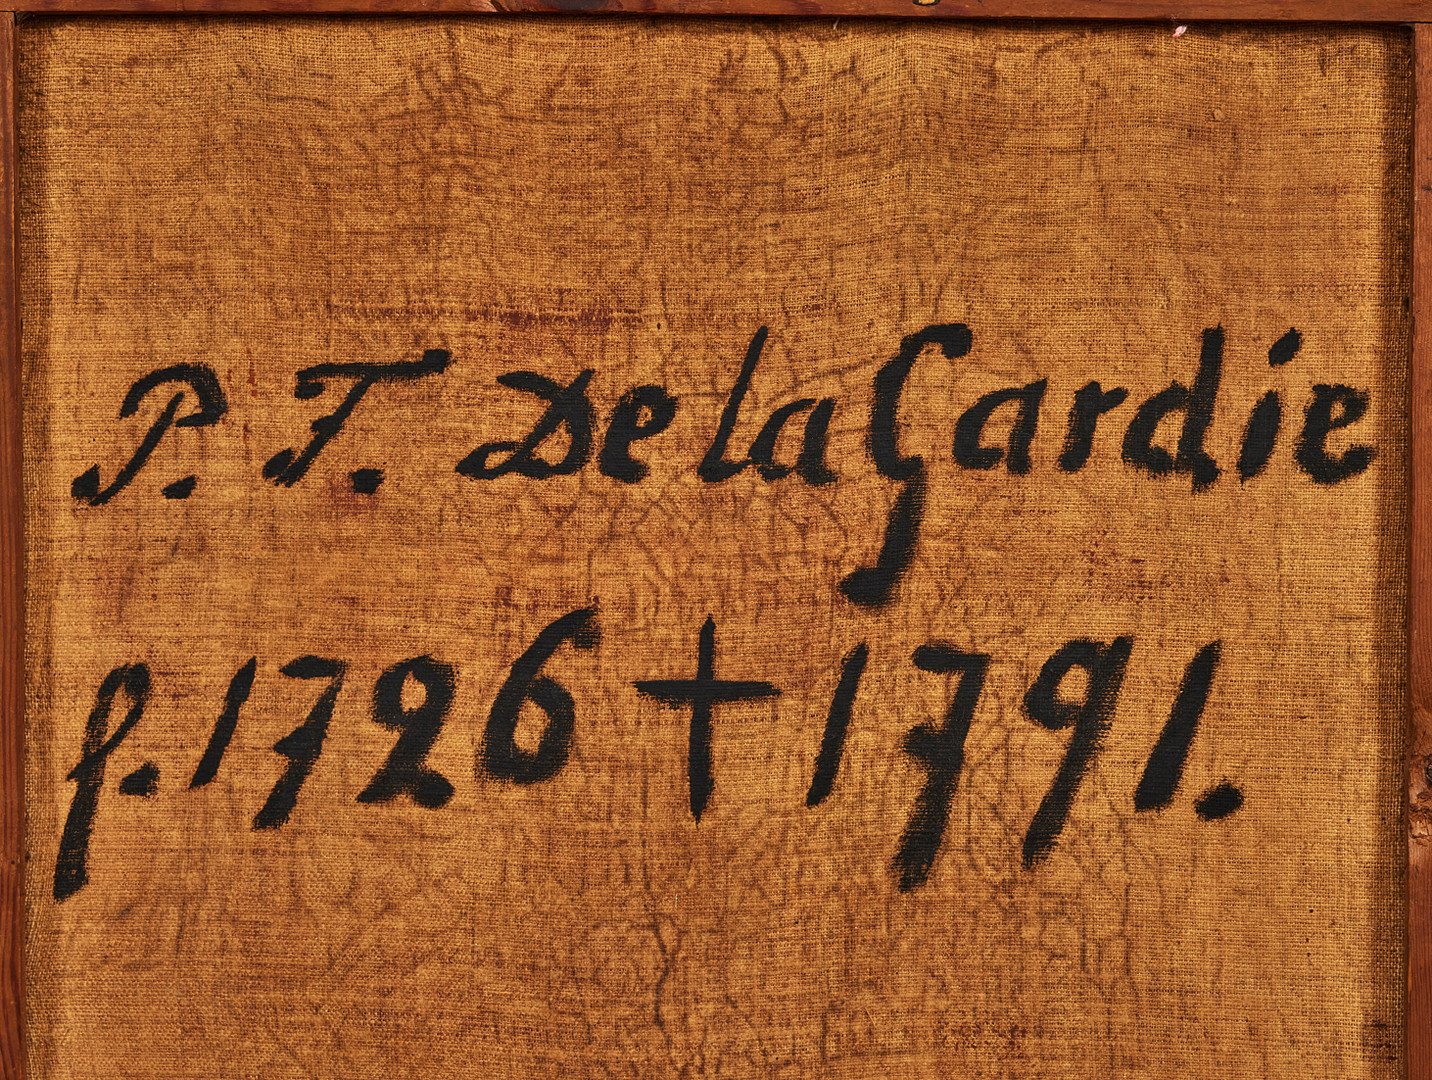 P. F. De la Gardie
f. 1726 † 1791.